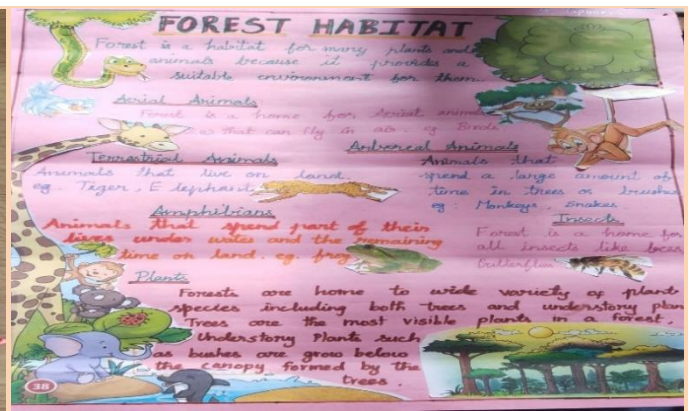 FOREST HABITAT
Forest is a habitat for many plants and
animals because it provides a
suitable environment for them.
Aerial Animals
Forest is a home for Aerial animals
that can fly in air. eg Birds
Terrestrial Animals
Animals that live on land.
eg. Tiger, Elephant
Arboreal Animals
Animals that
spend a large amount of
time in trees or brushes
eg: Monkeys, Snakes.
Amphibians
Animals that spend part of their
lives under water and the remaining
time on land. eg. frog
Insects
Forest is a home for
all insects like bees,
butterflies
Plants
Forests are home to wide variety of plant
species including both trees and understory plan
Trees are the most visible plants in forest,
Understory Plants such
as bushes are grow below
the canopy formed by the
trees.
38